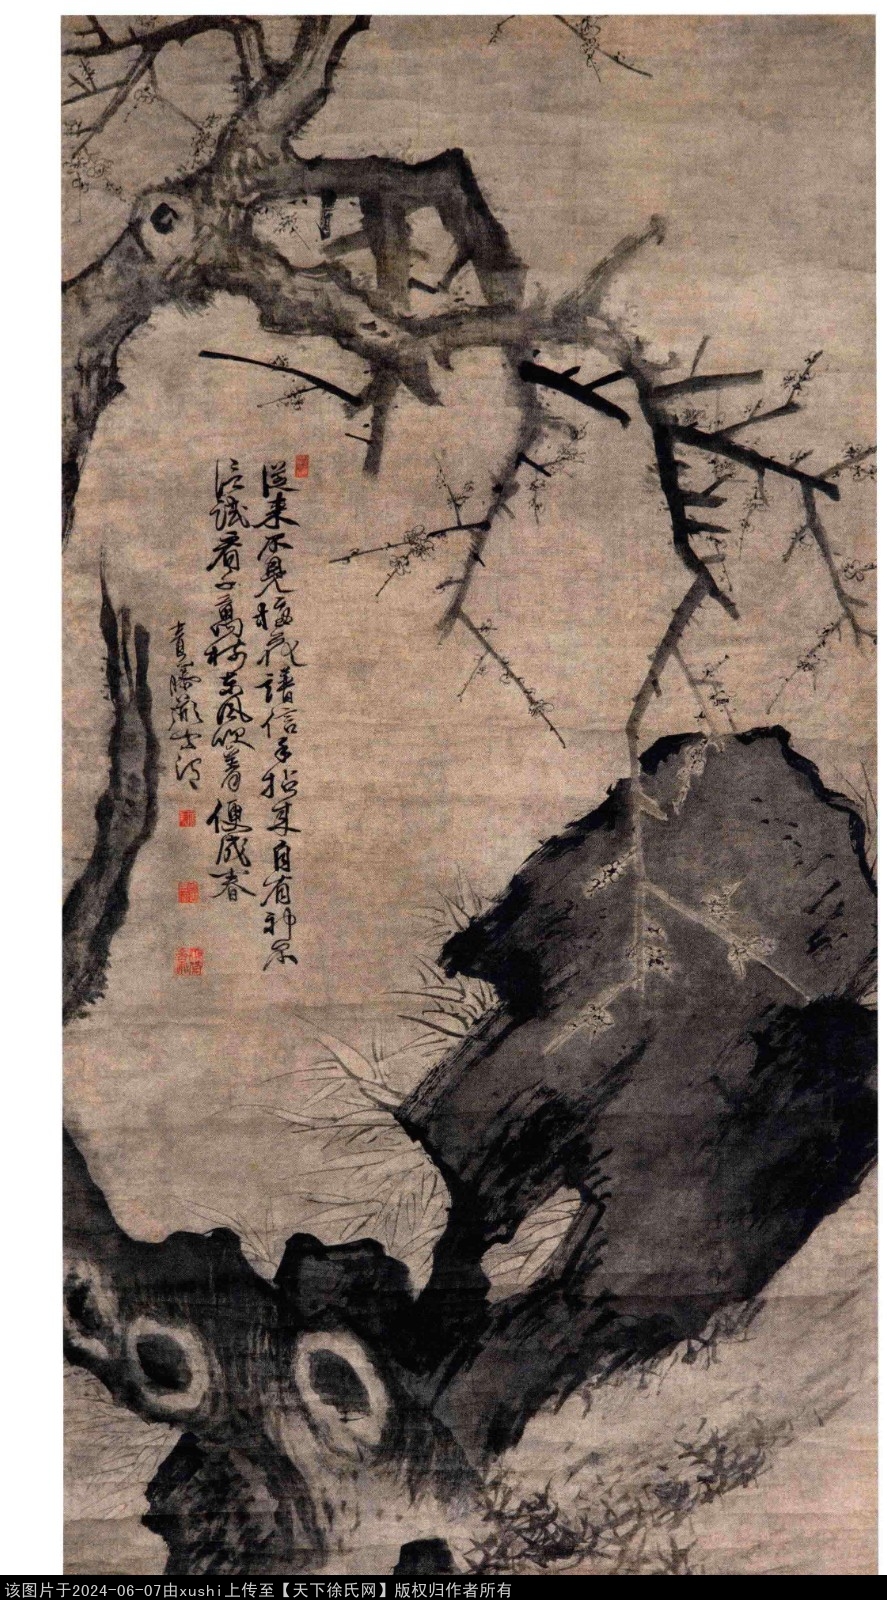 從来不見梅花譜信手拈来自有神不
信試看千萬樹東風吹著便成春
青藤道士渭
该图片于2024-06-07由xushi上传至【天下徐氏网】版权归作者所有